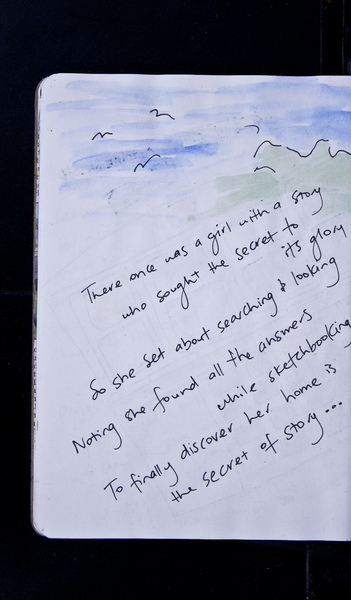 There once was a girl with a story
who sought the secret to
its glory
So she set about searching & looking
Noting she found all the answers
while sketchbooking
To finally discover her home is
the secret of story...